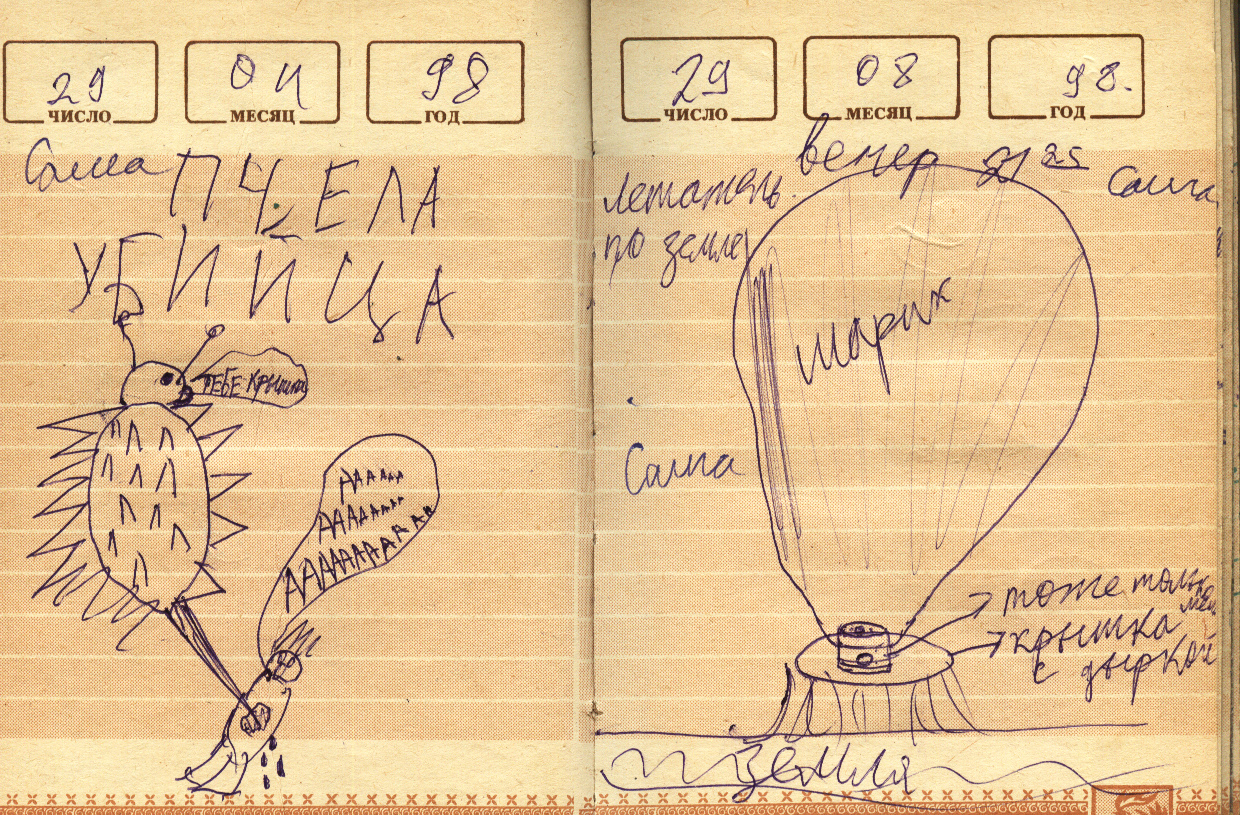 29 04 98
ЧИСЛО МЕСЯЦ ГОД
Саша ПЧЕЛА
УБИЙЦА
ТЕБЕ КРЫШКА
АААААА
АААААААА
ААААААААААА
29 08 98.
ЧИСЛО МЕСЯЦ ГОД
вечер 21 25
Летатель Саша
по земле
шарик
Саша
тоже только
крышка
с дыркой
земля